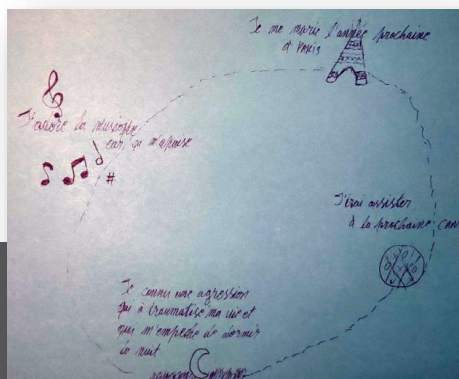 Je me marie l'année prochaine
à Paris
J'adore la musique
car ça m'apaise
#
J'irai assister
à la prochaine can
Je connu une agression
qui à traumatisé ma vie et
qui m'empêche de dormir
la nuit